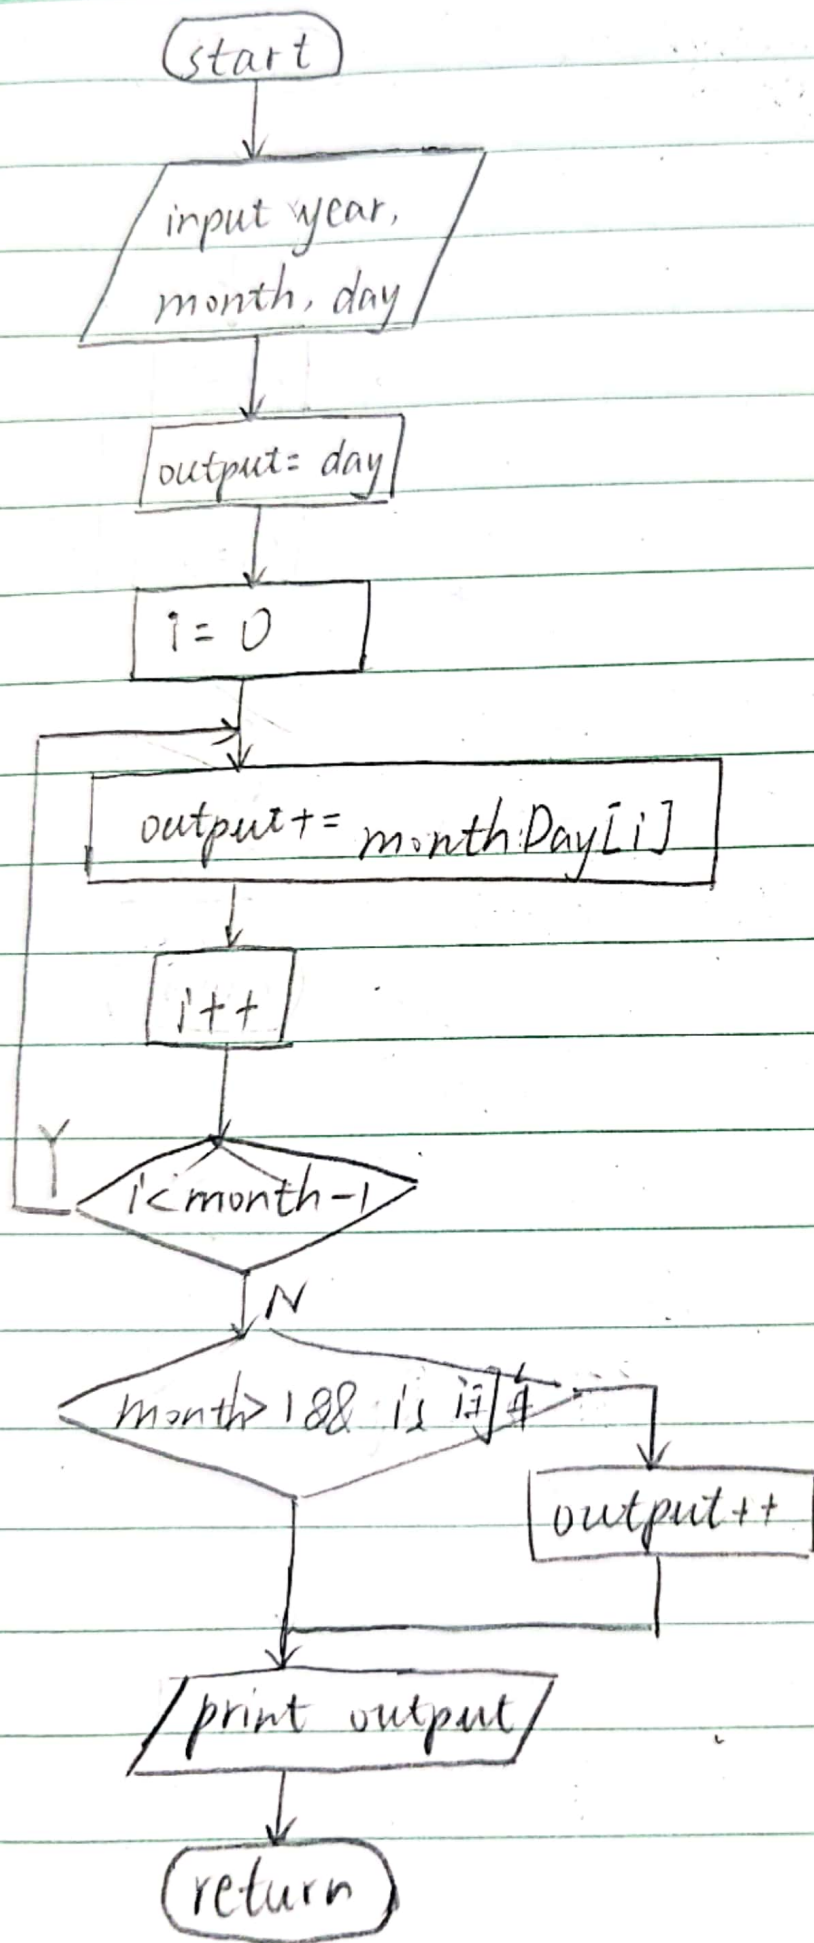 start
input year,
month, day
output= day
i= 0
output+= monthDay[i]
i++
Y
i<month-1
N
month>1&& is 闰年
output++
print output
return